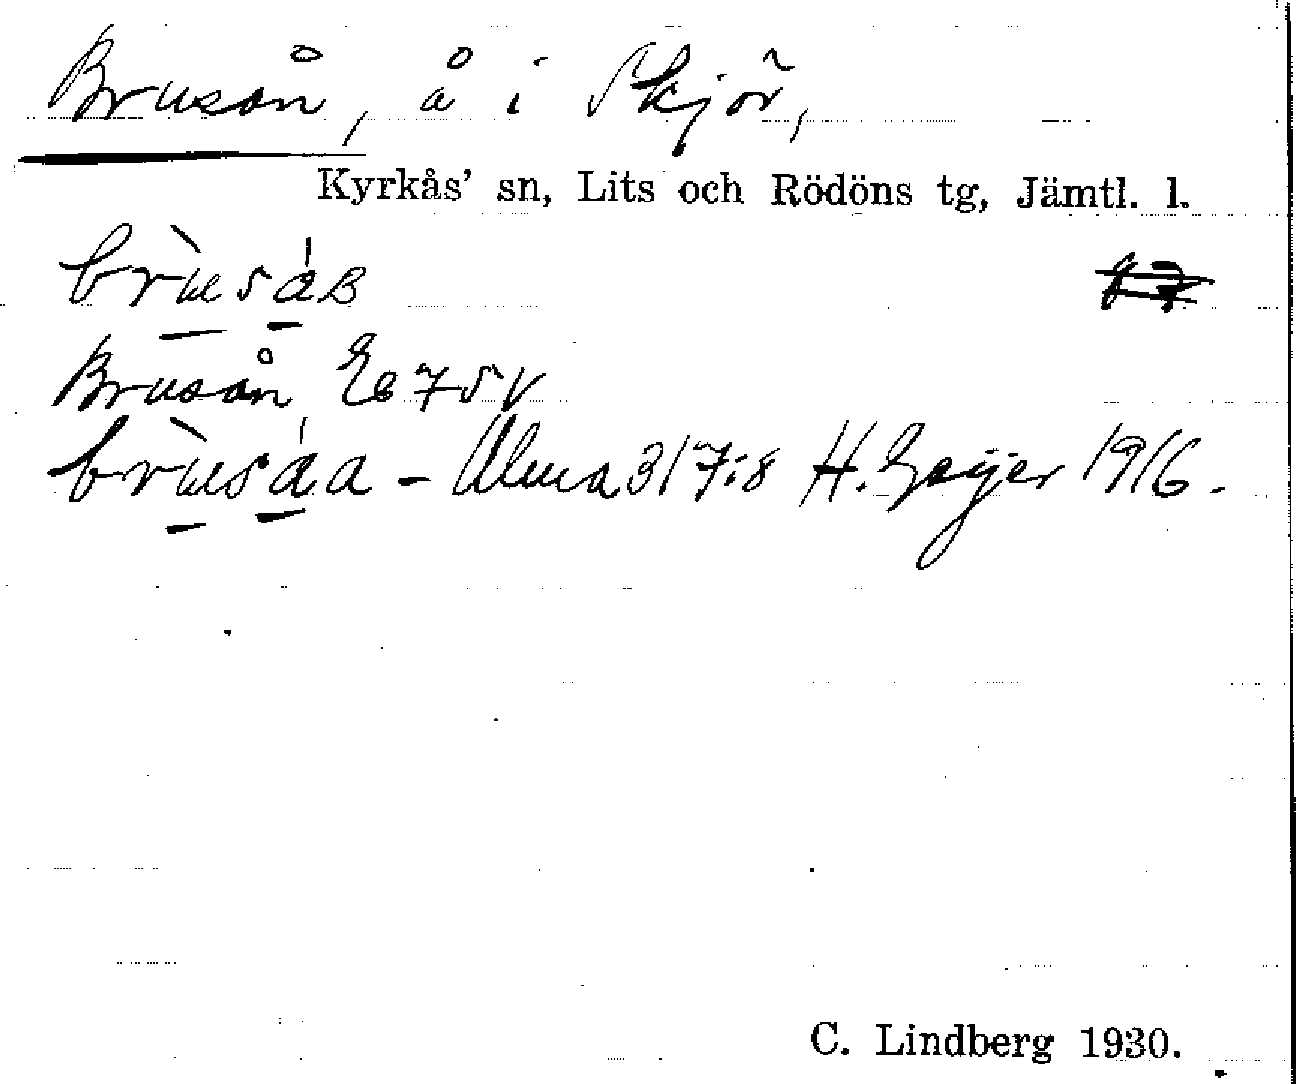 Brusån, å i Skjör,
Kyrkås' sn, Lits och Rödöns tg, Jämtl. l.
Brusån Eb 75 V
- Alma 317:8 H. Geijer 1916.
C. Lindberg 1930.